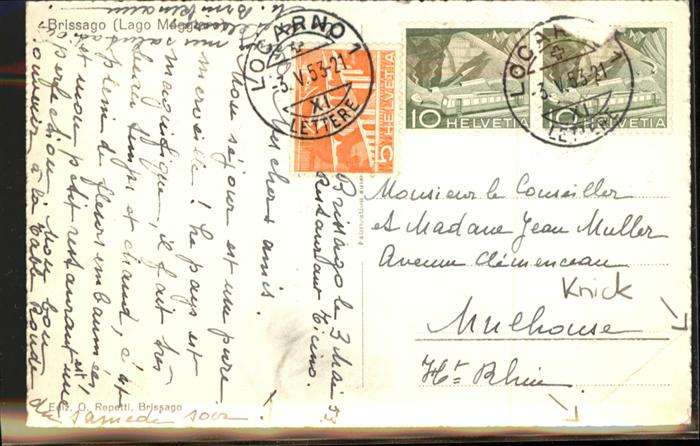 Brissago (Lago Maggiore)
LOCARNO 1
-3.V.53-21
XI
LETTERE
5 HELVETIA
10 HELVETIA
10 HELVETIA
LOCARNO
-3.V.53-21
XI
LETTERE
Brissago le 3 Mai 53
Restaurant Ticino.
chers amis.
séjour est une pure
merveille! Le pays est
magnifique, il fait très
beau temps et chaud, c'est
plein de fleurs embaumées
et mon petit restaurant est une
perfection
à la Table Ronde
du samedi soir
Monsieur le Conseiller
et Madame Jean Muller
Avenue Clémenceau
Knick
Mulhouse
Ht Rhin
Ediz. O. Repetti, Brissago